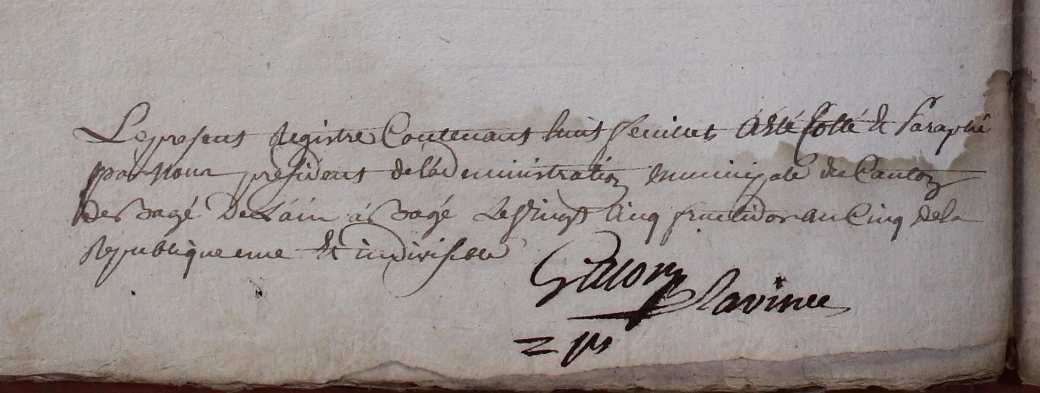 Le present Registre Contenant huit feuillets a été Cotté et Paraphé
par nous president de l'administration municipale du Canton
de Bagé De L'ain à Bagé Le Vingt Cinq fructidor an Cinq de la
Republique une et indivisible